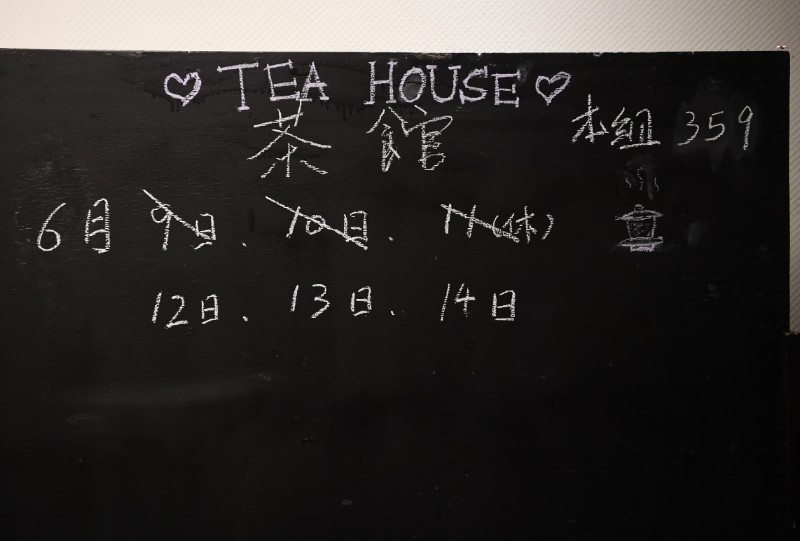 ♡ TEA HOUSE ♡
茶館
本組 359
6月 9日、10日、11(休)
12日、13日、14日